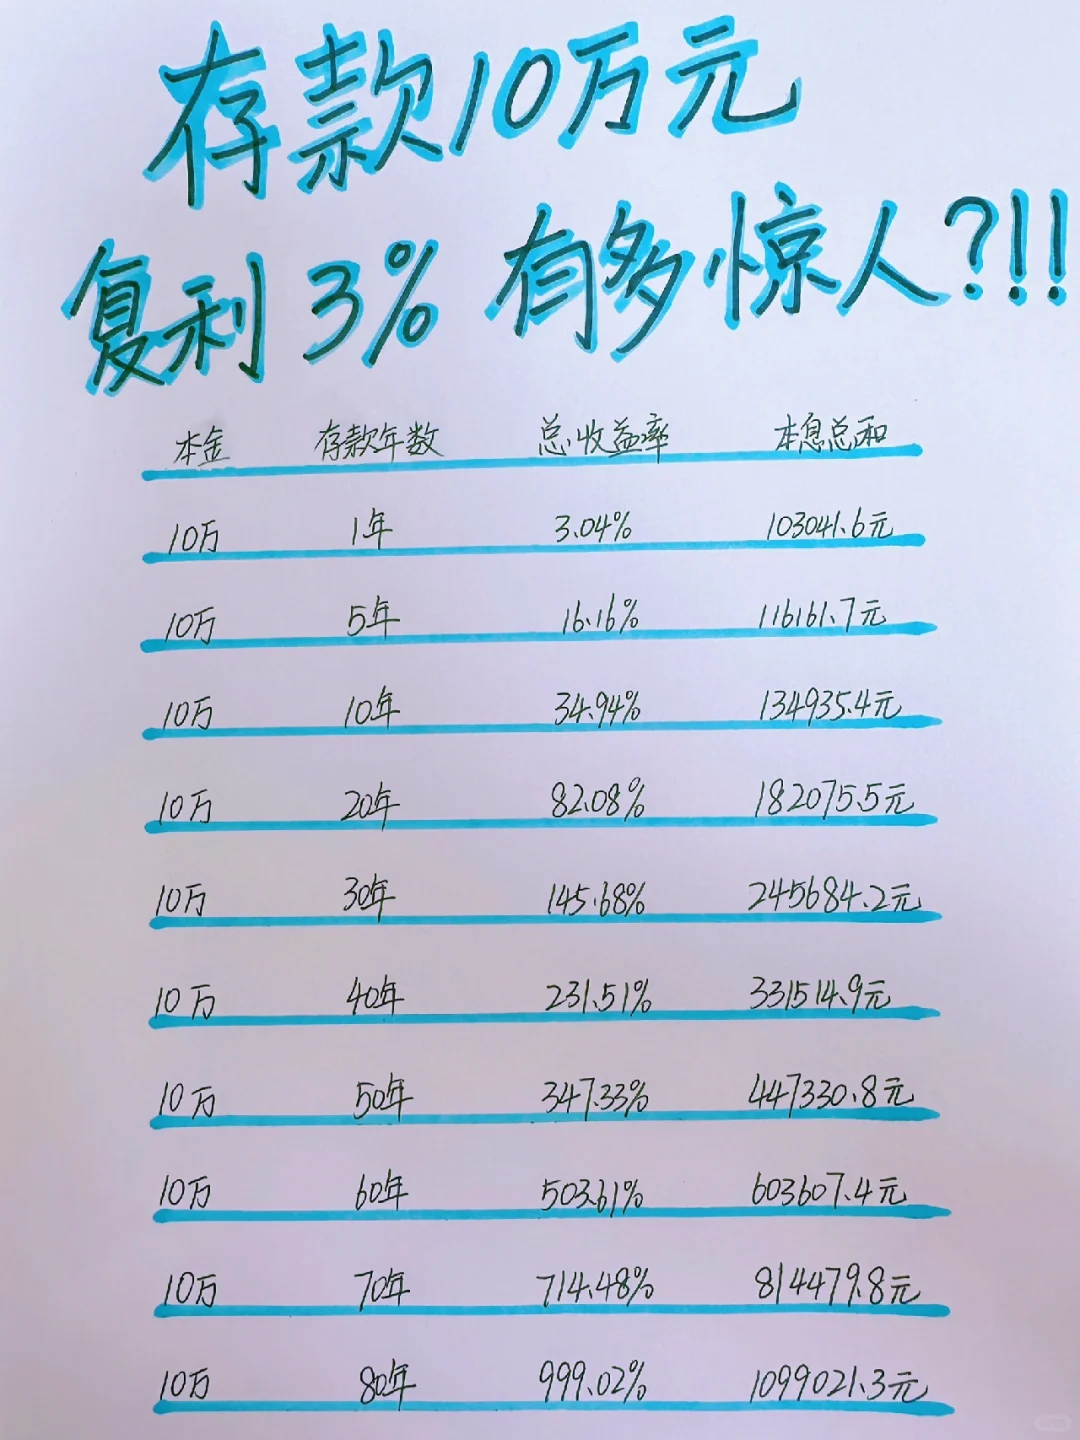 存款10万元
复利3%有多惊人?!!!
本金 存款年数 总收益率 本息总和
10万 1年 3.04% 103041.6元
10万 5年 16.16% 116161.7元
10万 10年 34.94% 134935.4元
10万 20年 82.08% 182075.5元
10万 30年 145.68% 245684.2元
10万 40年 231.51% 331514.9元
10万 50年 347.33% 447330.8元
10万 60年 503.61% 603607.4元
10万 70年 714.48% 814479.8元
10万 80年 999.02% 1099021.3元